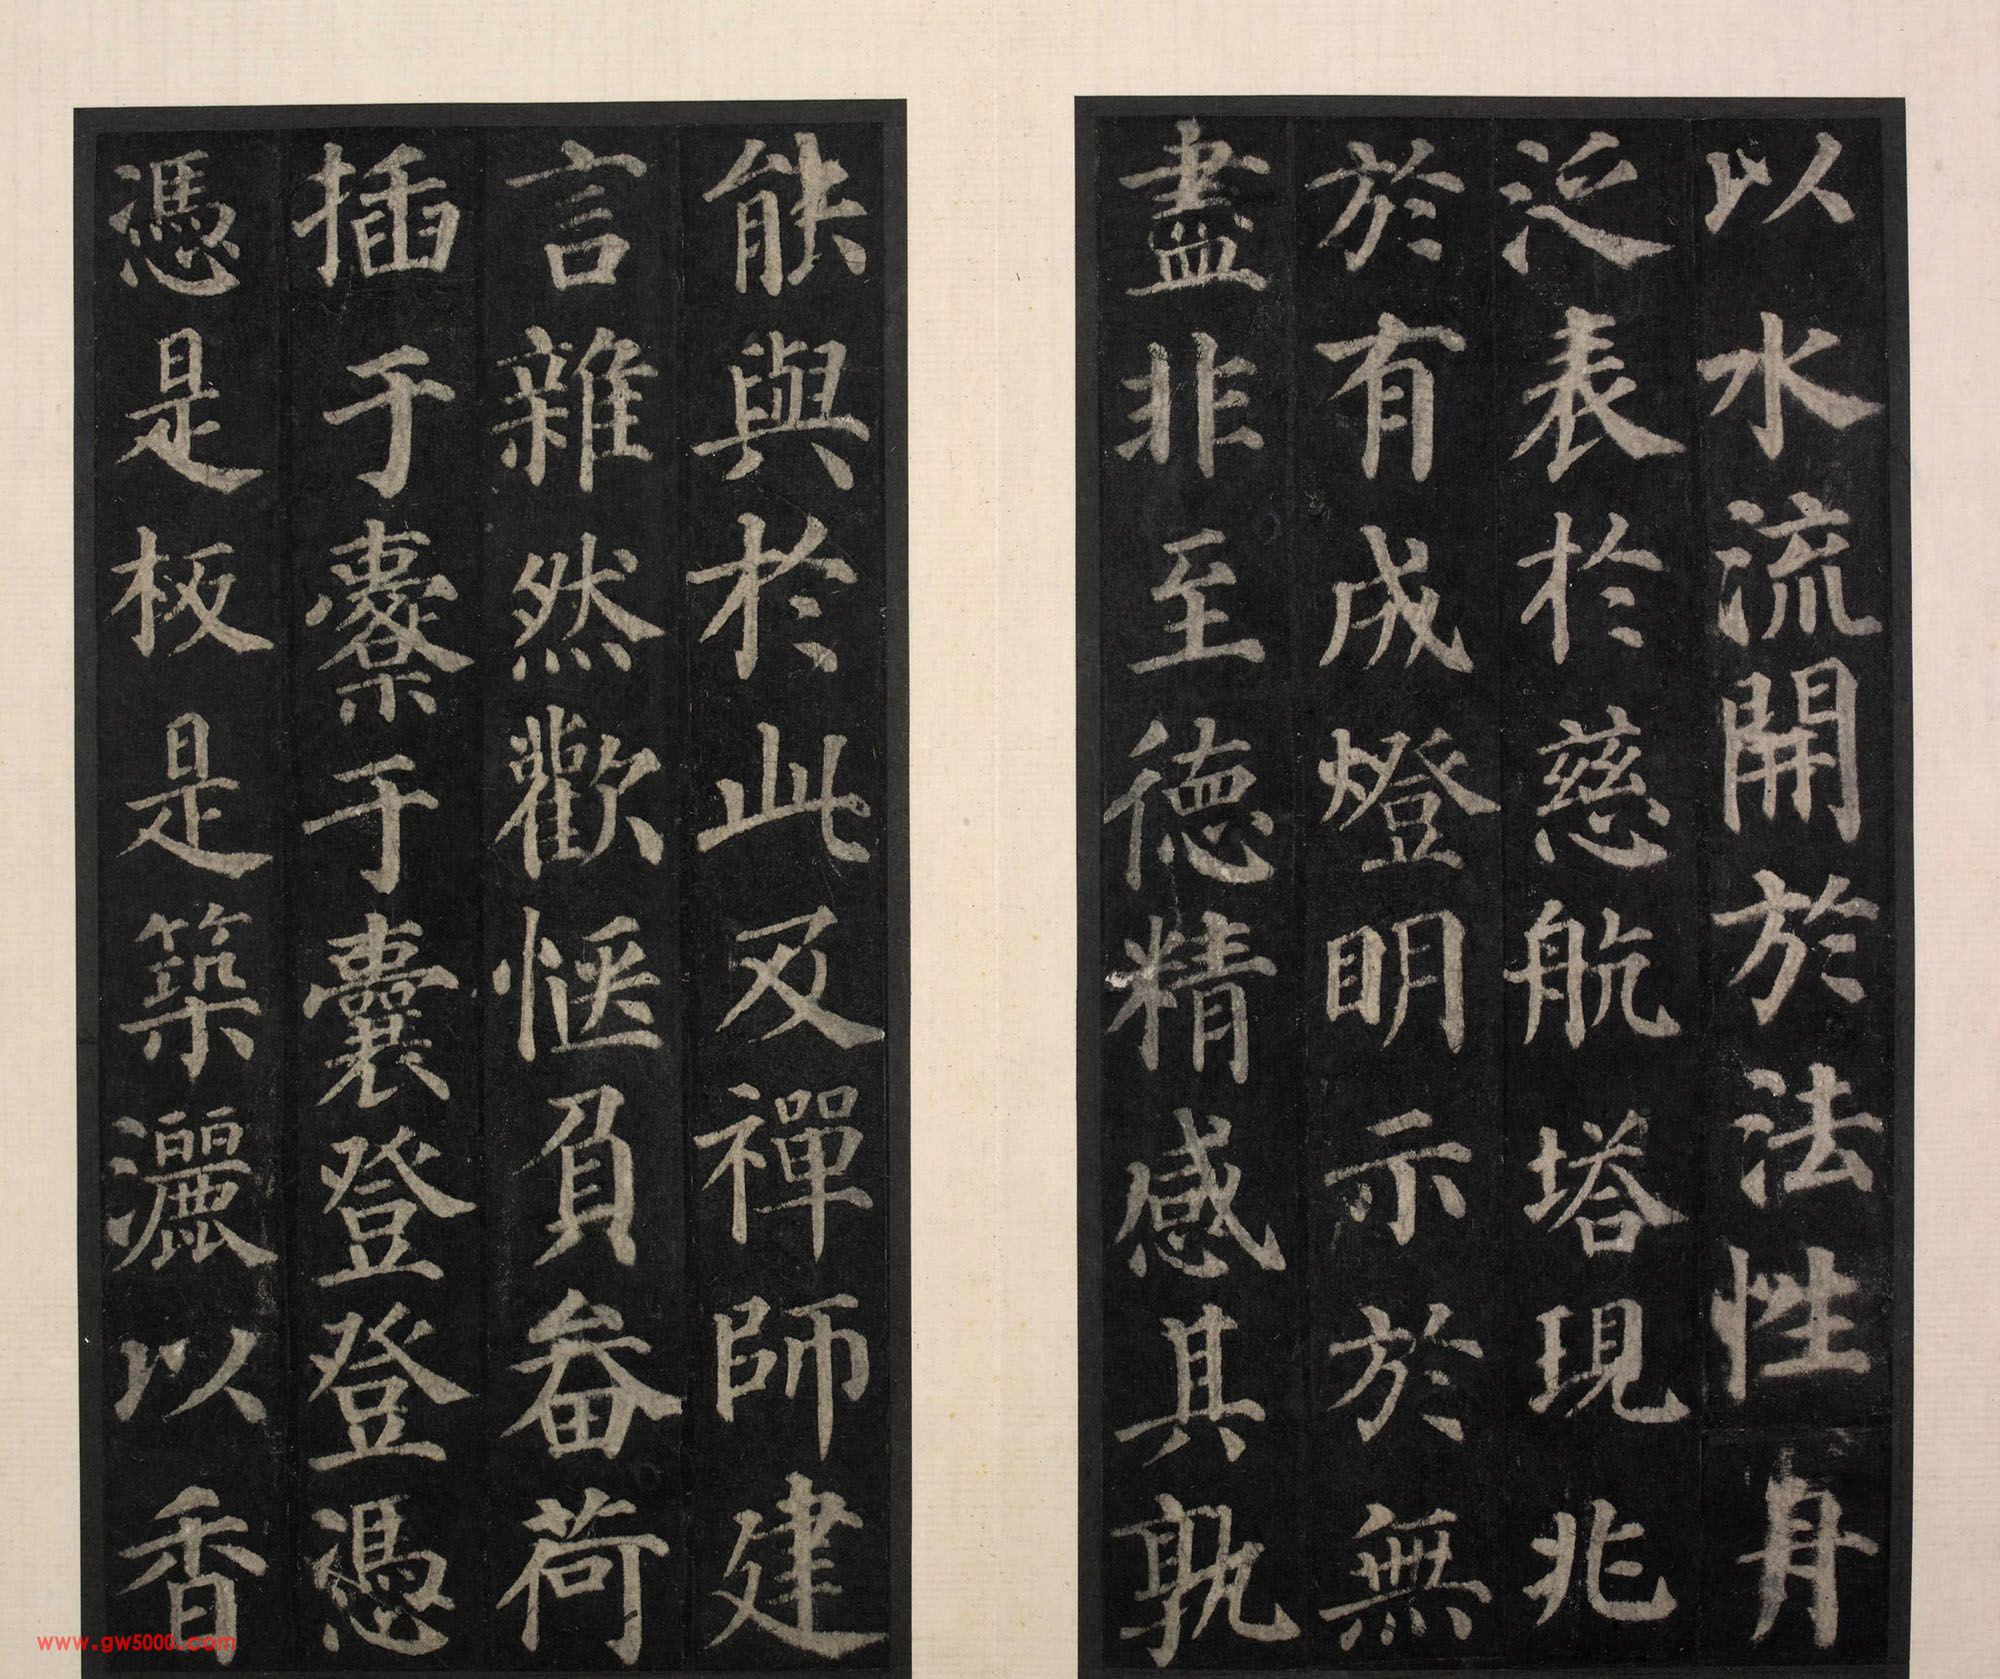 以水流開於法性身
泛表於慈航塔現兆
於有成燈明示於無
盡非至德精感其孰
能與於此及禪師建
言雜然歡愜負畚荷
插于橐于囊登登憑
憑是板是築灑以香
www.gw5000.com